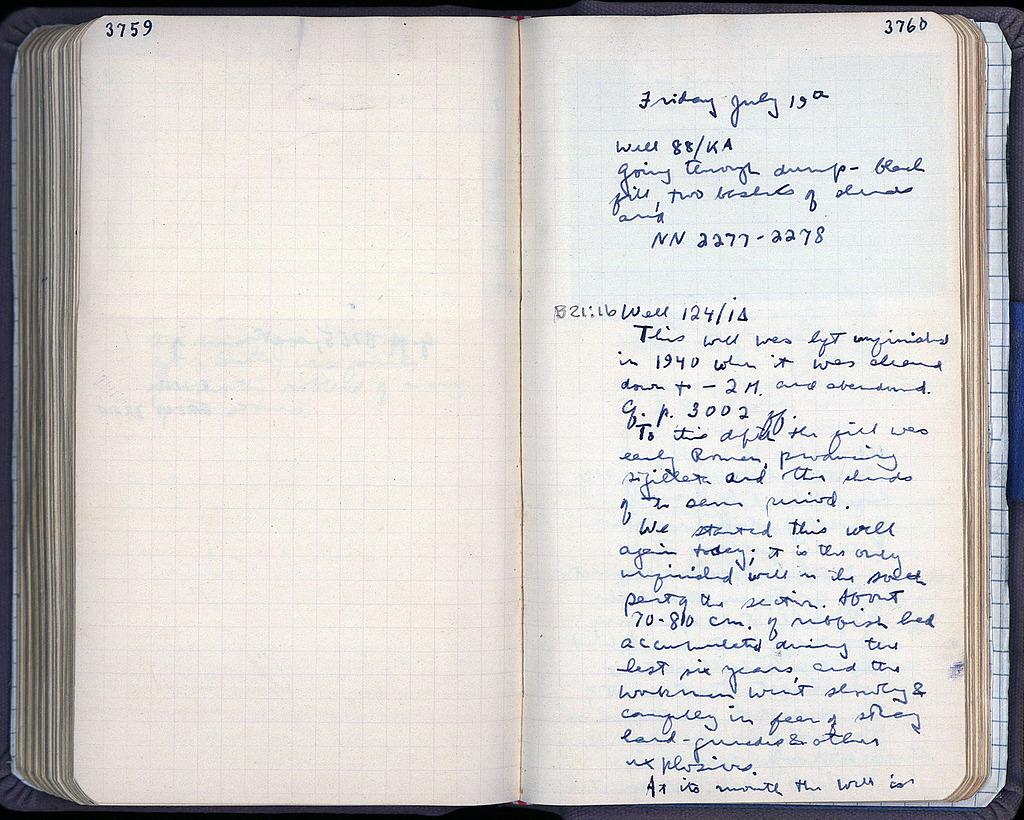 3759
3760
Friday July 19th
Well 88/KA
going through dump - black
fill, two baskets of sherds
and
NN 2277-2278
B21:16 Well 124/ΙΔ
This well was left unfinished
in 1940 when it was cleared
down to -2 M. and abandoned.
Cf. p. 3002 ff.
To this depth the fill was
early Roman, producing
sigillata and other sherds
of the same period.
We started this well
again today; it is the only
unfinished well in the south
part of the section. About
70-80 cm. of rubbish had
accumulated during the
last six years, and the
workmen went slowly &
carefully in fear of stray
hand-grenades & other
explosives.
At its mouth the well is